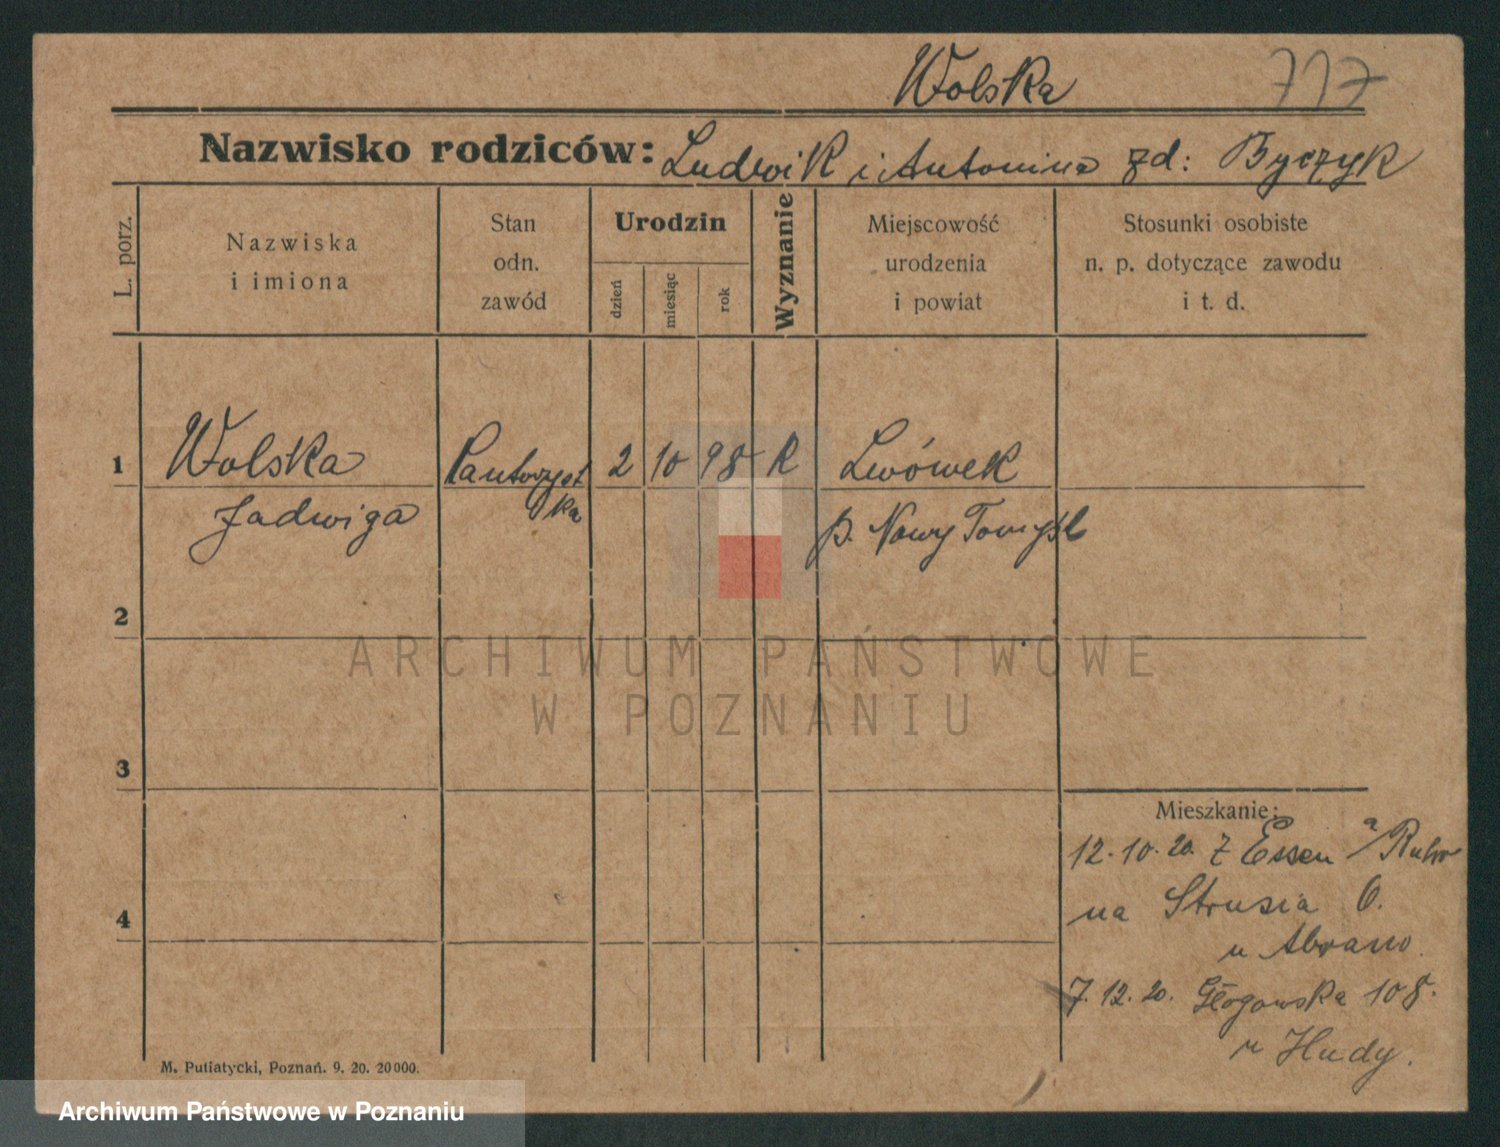 Wolska 717
Nazwisko rodziców: Ludwik i Antonina zd: Byczyk
L. porz.
Nazwiska
i imiona
Stan
odn.
zawód
Urodzin
dzień
miesiąc
rok
Wyznanie
Miejscowość
urodzenia
i powiat
Stosunki osobiste
n. p. dotyczące zawodu
i t. d.
1 Wolska Kantorzyst 2 10 98 R Lwówek
Jadwiga ka p. Nowy Tomyśl
2
3
4
ARCHIWUM PAŃSTWOWE
W POZNANIU
Mieszkanie:
12.10.20. z Essen a/Ruhr
na Strusia 6.
u Abram.
7.12.20. Głogowska 108.
u Hudy.
M. Putiatycki, Poznań. 9. 20. 20000.
Archiwum Państwowe w Poznaniu